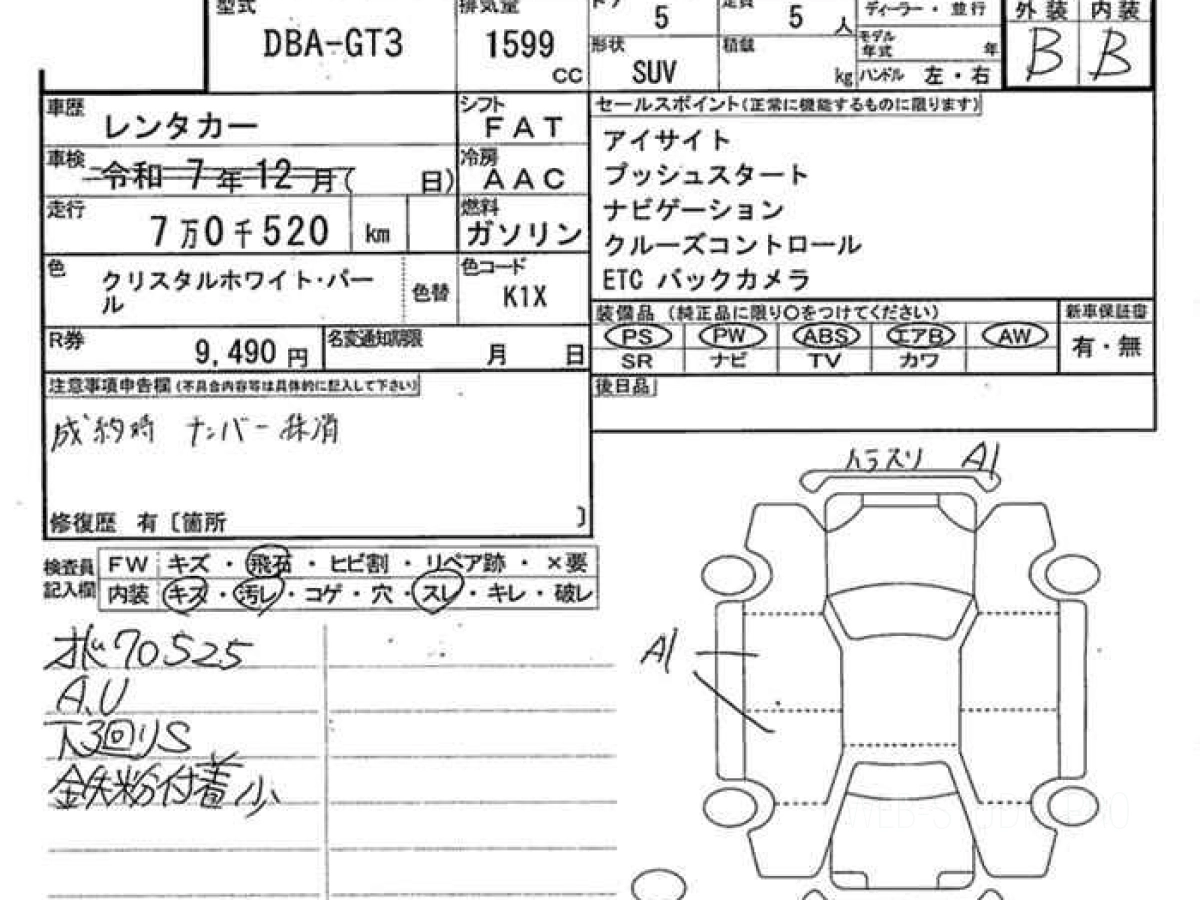 型式 DBA-GT3
排気量 1599 CC
ドア 5
定員 5 人
形状 SUV
積載 kg
ディーラー・並行
モデル年式 年
ハンドル 左・右
外装 内装
B B
車歴 レンタカー
シフト FAT
車検 令和 7 年 12 月( 日)
冷房 AAC
走行 7万0千520 km
燃料 ガソリン
色 クリスタルホワイト・パール
色替
色コード K1X
R券 9,490 円
名変通知期限 月 日
セールスポイント(正常に機能するものに限ります)
アイサイト
プッシュスタート
ナビゲーション
クルーズコントロール
ETC バックカメラ
装備品 (純正品に限り○をつけてください)
新車保証書
PS PW ABS エアB AW
有・無
SR ナビ TV カワ
後日品」
注意事項申告欄(不具合内容等は具体的に記入して下さい)
成約時 ナンバー抹消
修復歴 有〔箇所 〕
検査員記入欄
FW キズ・飛石・ヒビ割・リペア跡・×要
内装 キズ・汚レ・コゲ・穴・スレ・キレ・破レ
70525
A、U
下回りS
鉄粉付着小
ハラスリ A1
A1